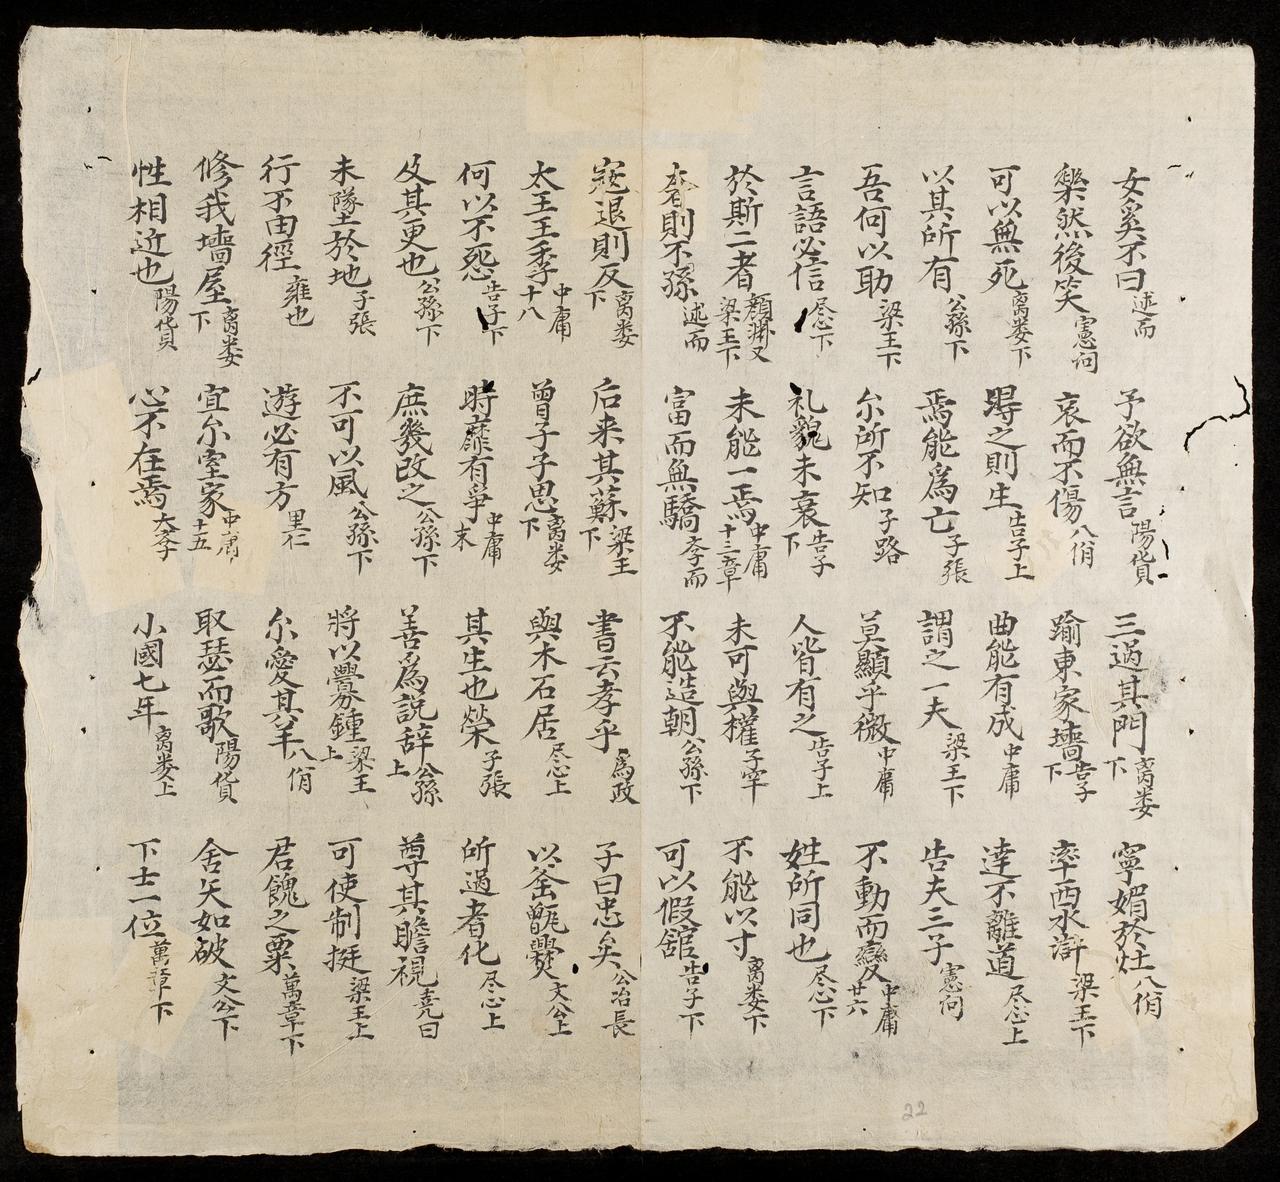 女奚不曰述而 予欲無言陽貨 三過其門离娄下 寧媚於灶八佾
樂然後笑憲问 哀而不傷八佾 踰東家墻告子下 率西水滸梁王下
可以無死离娄下 得之則生告子上 曲能有成中庸 達不離道尽心上
以其所有公孫下 焉能為亡子張 謂之一夫梁王下 告夫三子憲问
吾何以助梁王下 尔所不知子路 莫顯乎微中庸 不動而變中庸廿六
言語必信尽心下 礼貌未衰告子下 人皆有之告子上 姓所同也尽心下
於斯二者顏渊又梁王下 未能一焉中庸十三章 未可與權子罕 不能以寸离娄下
奢則不孫述而 富而無驕学而 不能造朝公孫下 可以假舘告子下
寇退則反离娄下 后来其蘇梁王下 書云孝乎為政 子曰忠矣公冶長
太王王季中庸十八 曾子子思离娄下 與木石居尽心上 以釜甑爨文公上
何以不死告子下 時靡有爭中庸末 其生也榮子張 所過者化尽心上
及其更也公孫下 庶幾改之公孫下 善為説辞公孫上 尊其瞻視尭曰
未墜於地子張 不可以風公孫下 將以釁鍾梁王上 可使制挺梁王上
行不由徑雍也 遊必有方里仁 尔愛其羊八佾 君餽之粟萬章下
修我墻屋离娄下 宜尔室家中庸十五 取瑟而歌陽貨 舍矢如破文公下
性相近也陽貨 心不在焉大学 小國七年离娄上 下士一位萬章下
22